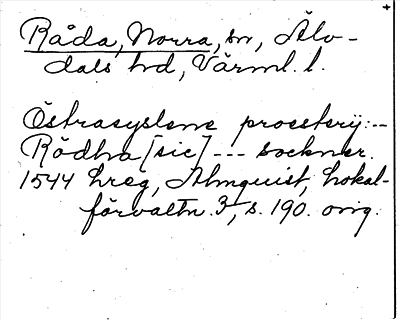 Råda, Norra, sn, Älv-
dals hd, Värml. l.
Östrasyslene prosterij:--
Rödha [sic] --- sockner.
1544 hreg, Almquist, Lokal-
förvaltn. 3, s. 190. orig.